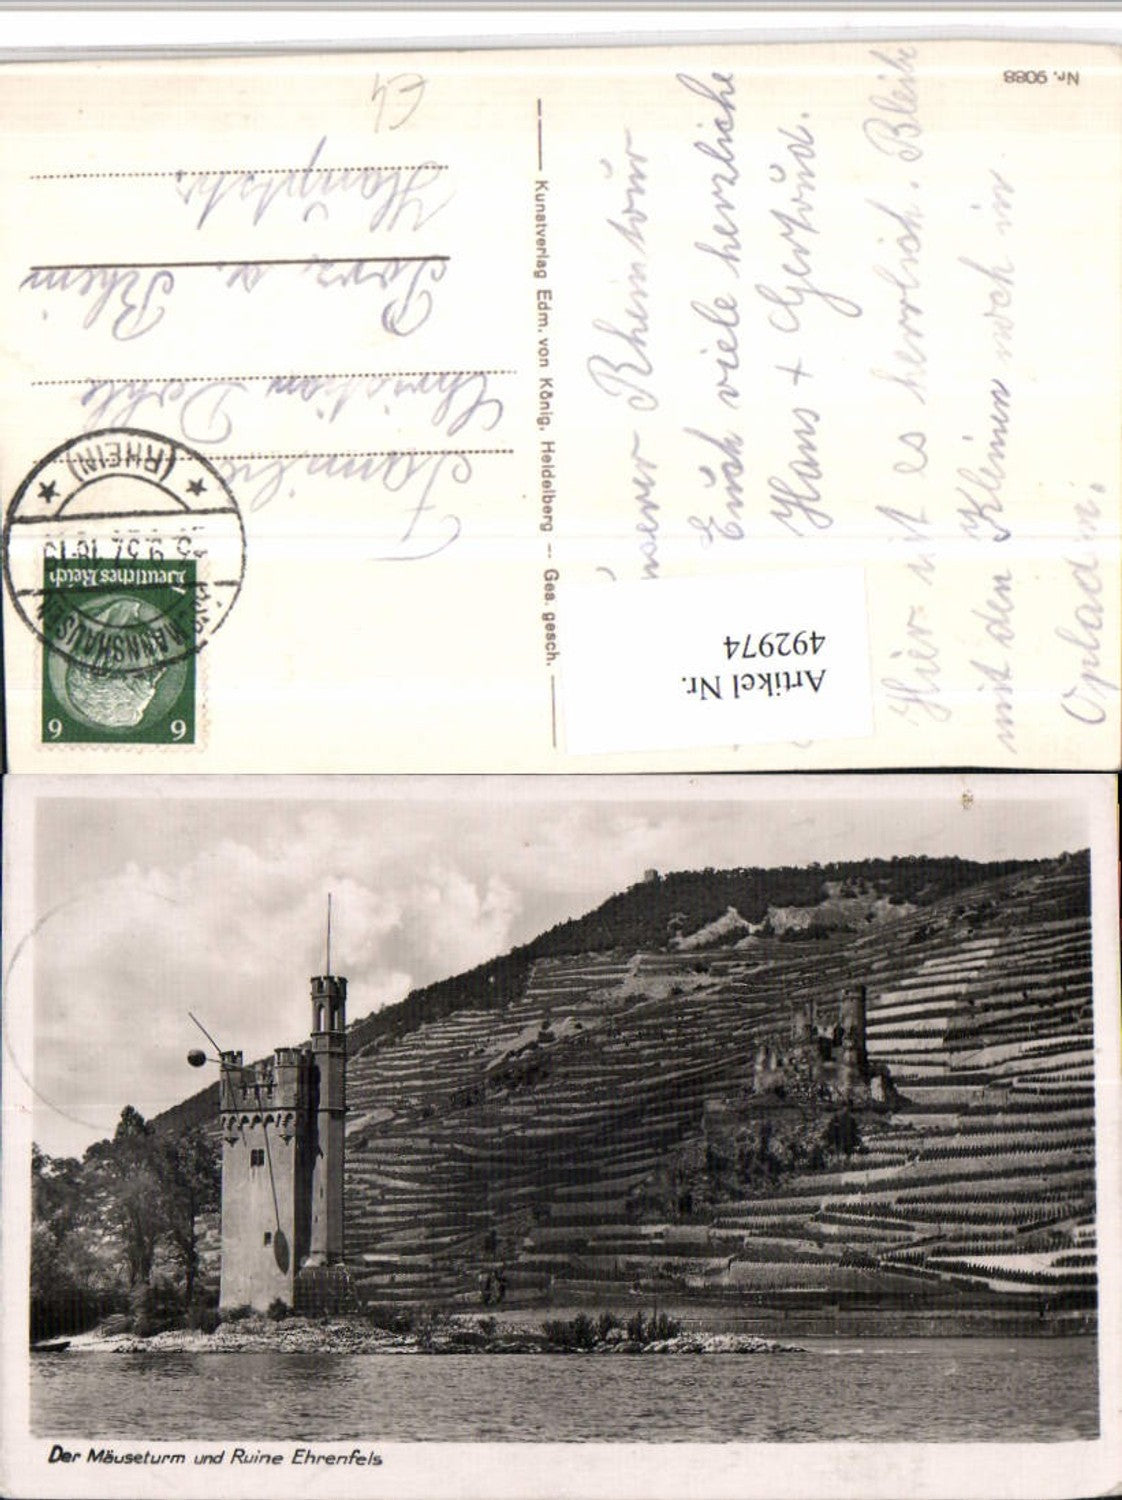 Nr. 9088
E4
Familie
Christian Dohle
Porz a. Rhein
Hauptstr.
Kunstverlag Edm. von König, Heidelberg — Ges. gesch.
Deutsches Reich
6 6
ASSMANNSHAUSEN
9.37.18-19
(RHEIN)
unserer Rheintour
Euch viele herzliche
Hans + Gertrud.
Hier ist es herrlich. Bleib
mit den Kleinen noch in
Opladen.
Artikel Nr.
492974
Der Mäuseturm und Ruine Ehrenfels